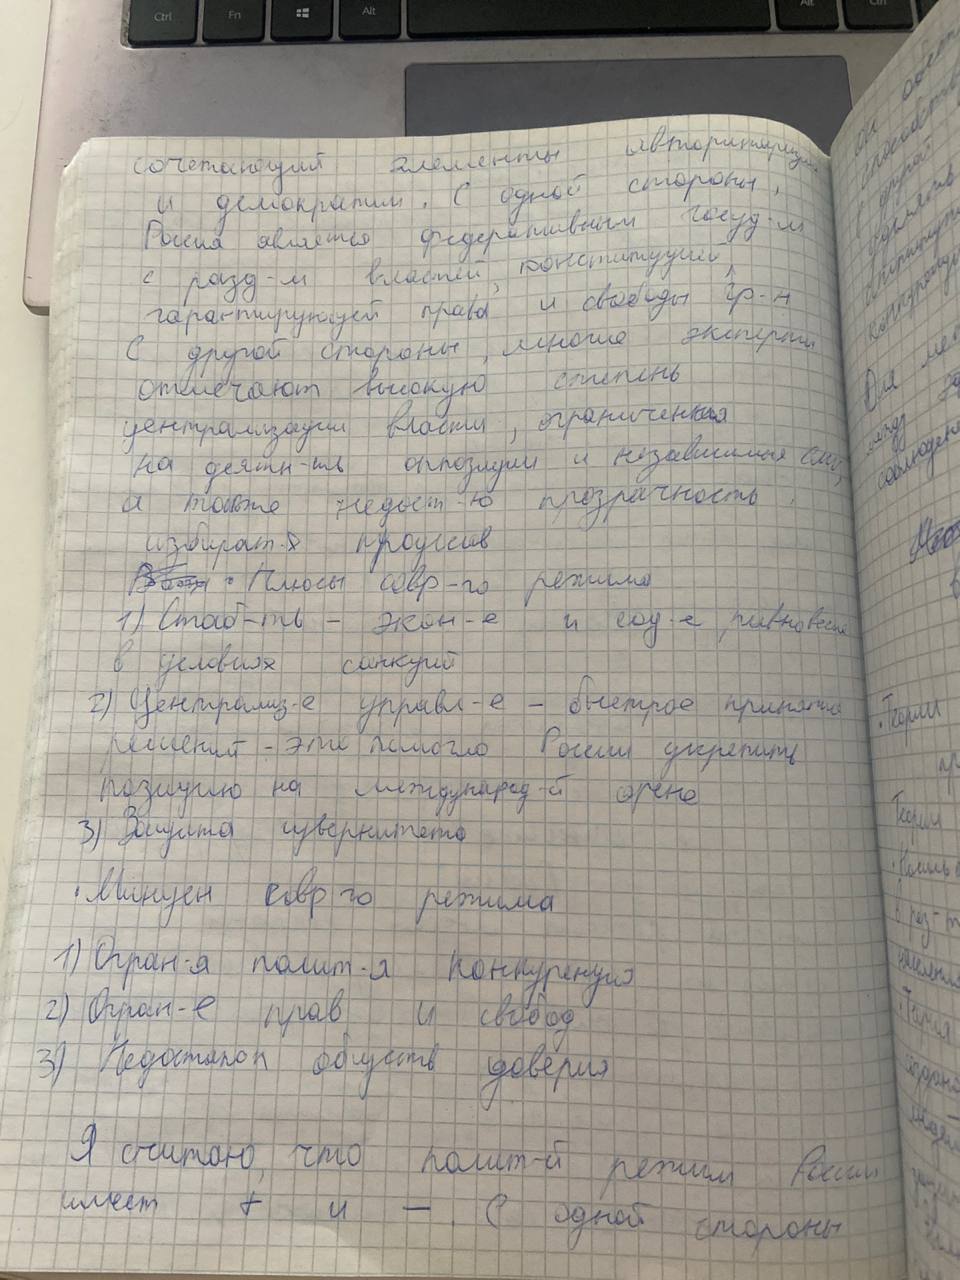 Ctrl
Fn
Alt
Alt
Ctrl
сочетающий элементы авторитаризма
и демократии. С одной стороны,
Россия является федеративным госуд-м
с разд-м власти, конституцией,
гарантирующей права и свободы гр-н
С другой стороны, многие эксперты
отмечают высокую степень
централизации власти, ограничения
на деятн-ть оппозиции и независимые СМИ,
а также недост-ю прозрачность
избират-х процессов
• Плюсы совр-го режима
1) Стаб-ть - экон-е и соц-е равновесие
в условиях санкций
2) Централиз-е управл-е - быстрое принятие
решений - это помогло России укрепить
позицию на международ-й арене
3) Защита сувернитета
• Минусы совр-го режима
1) Огран-я полит-я конкуренция
2) Огран-е прав и свобод
3) Недостаток обществ доверия
Я считаю, что полит-й режим России
имеет + и -. С одной стороны
Для
соблюден
• Теории
Теории